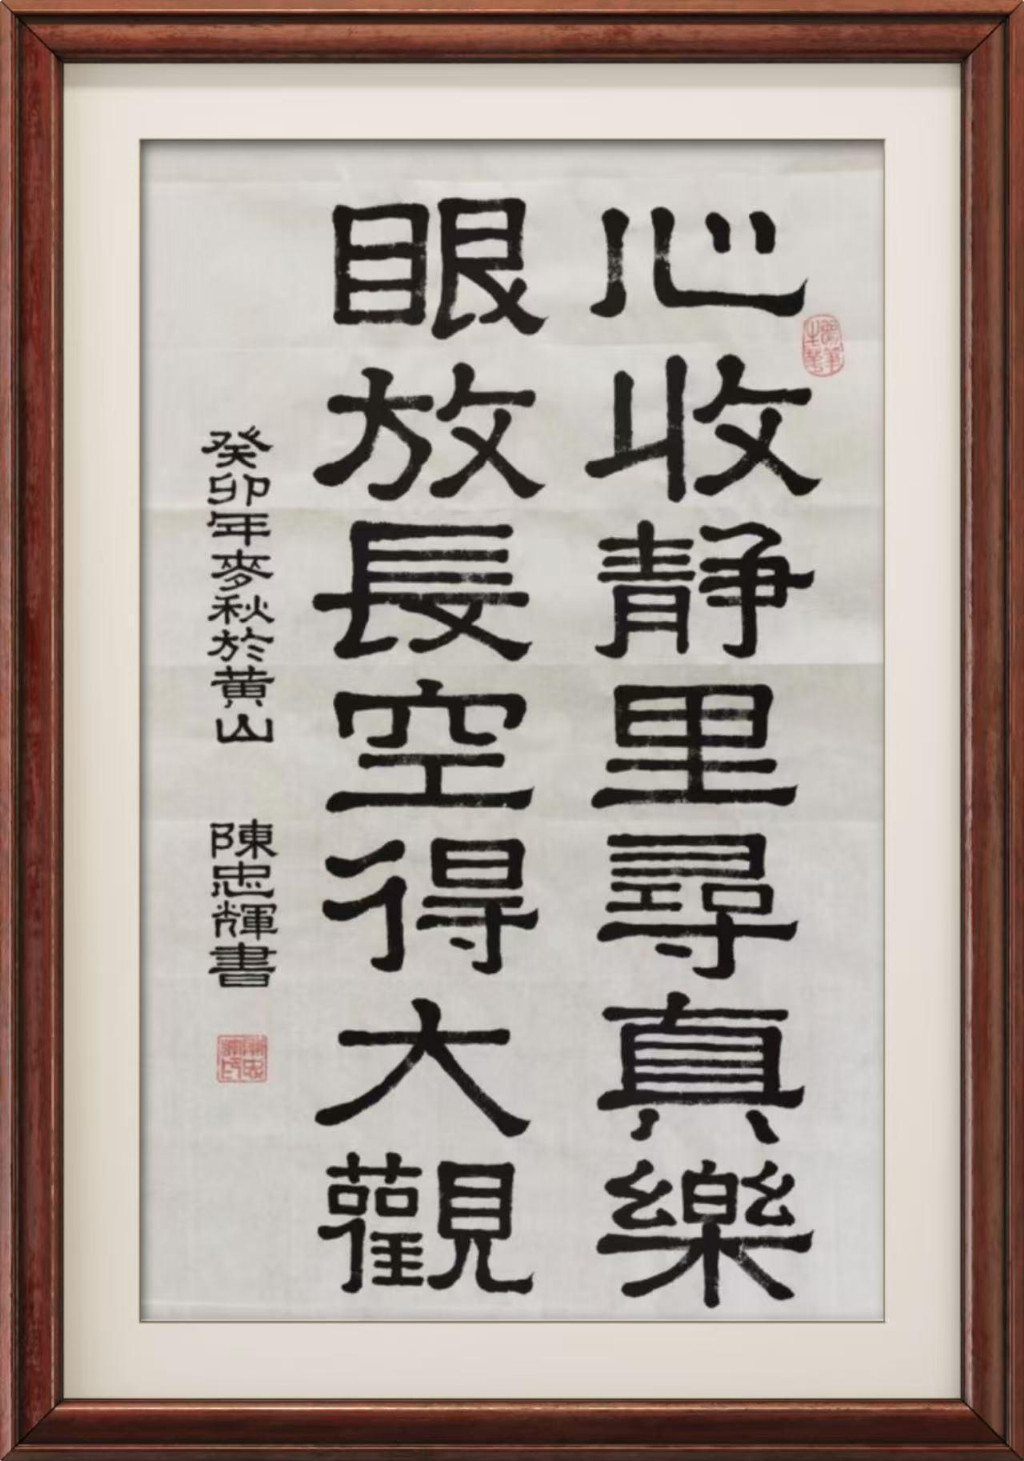 心收静里尋真樂
眼放長空得大觀
癸卯年麥秋於黄山
陳忠輝書